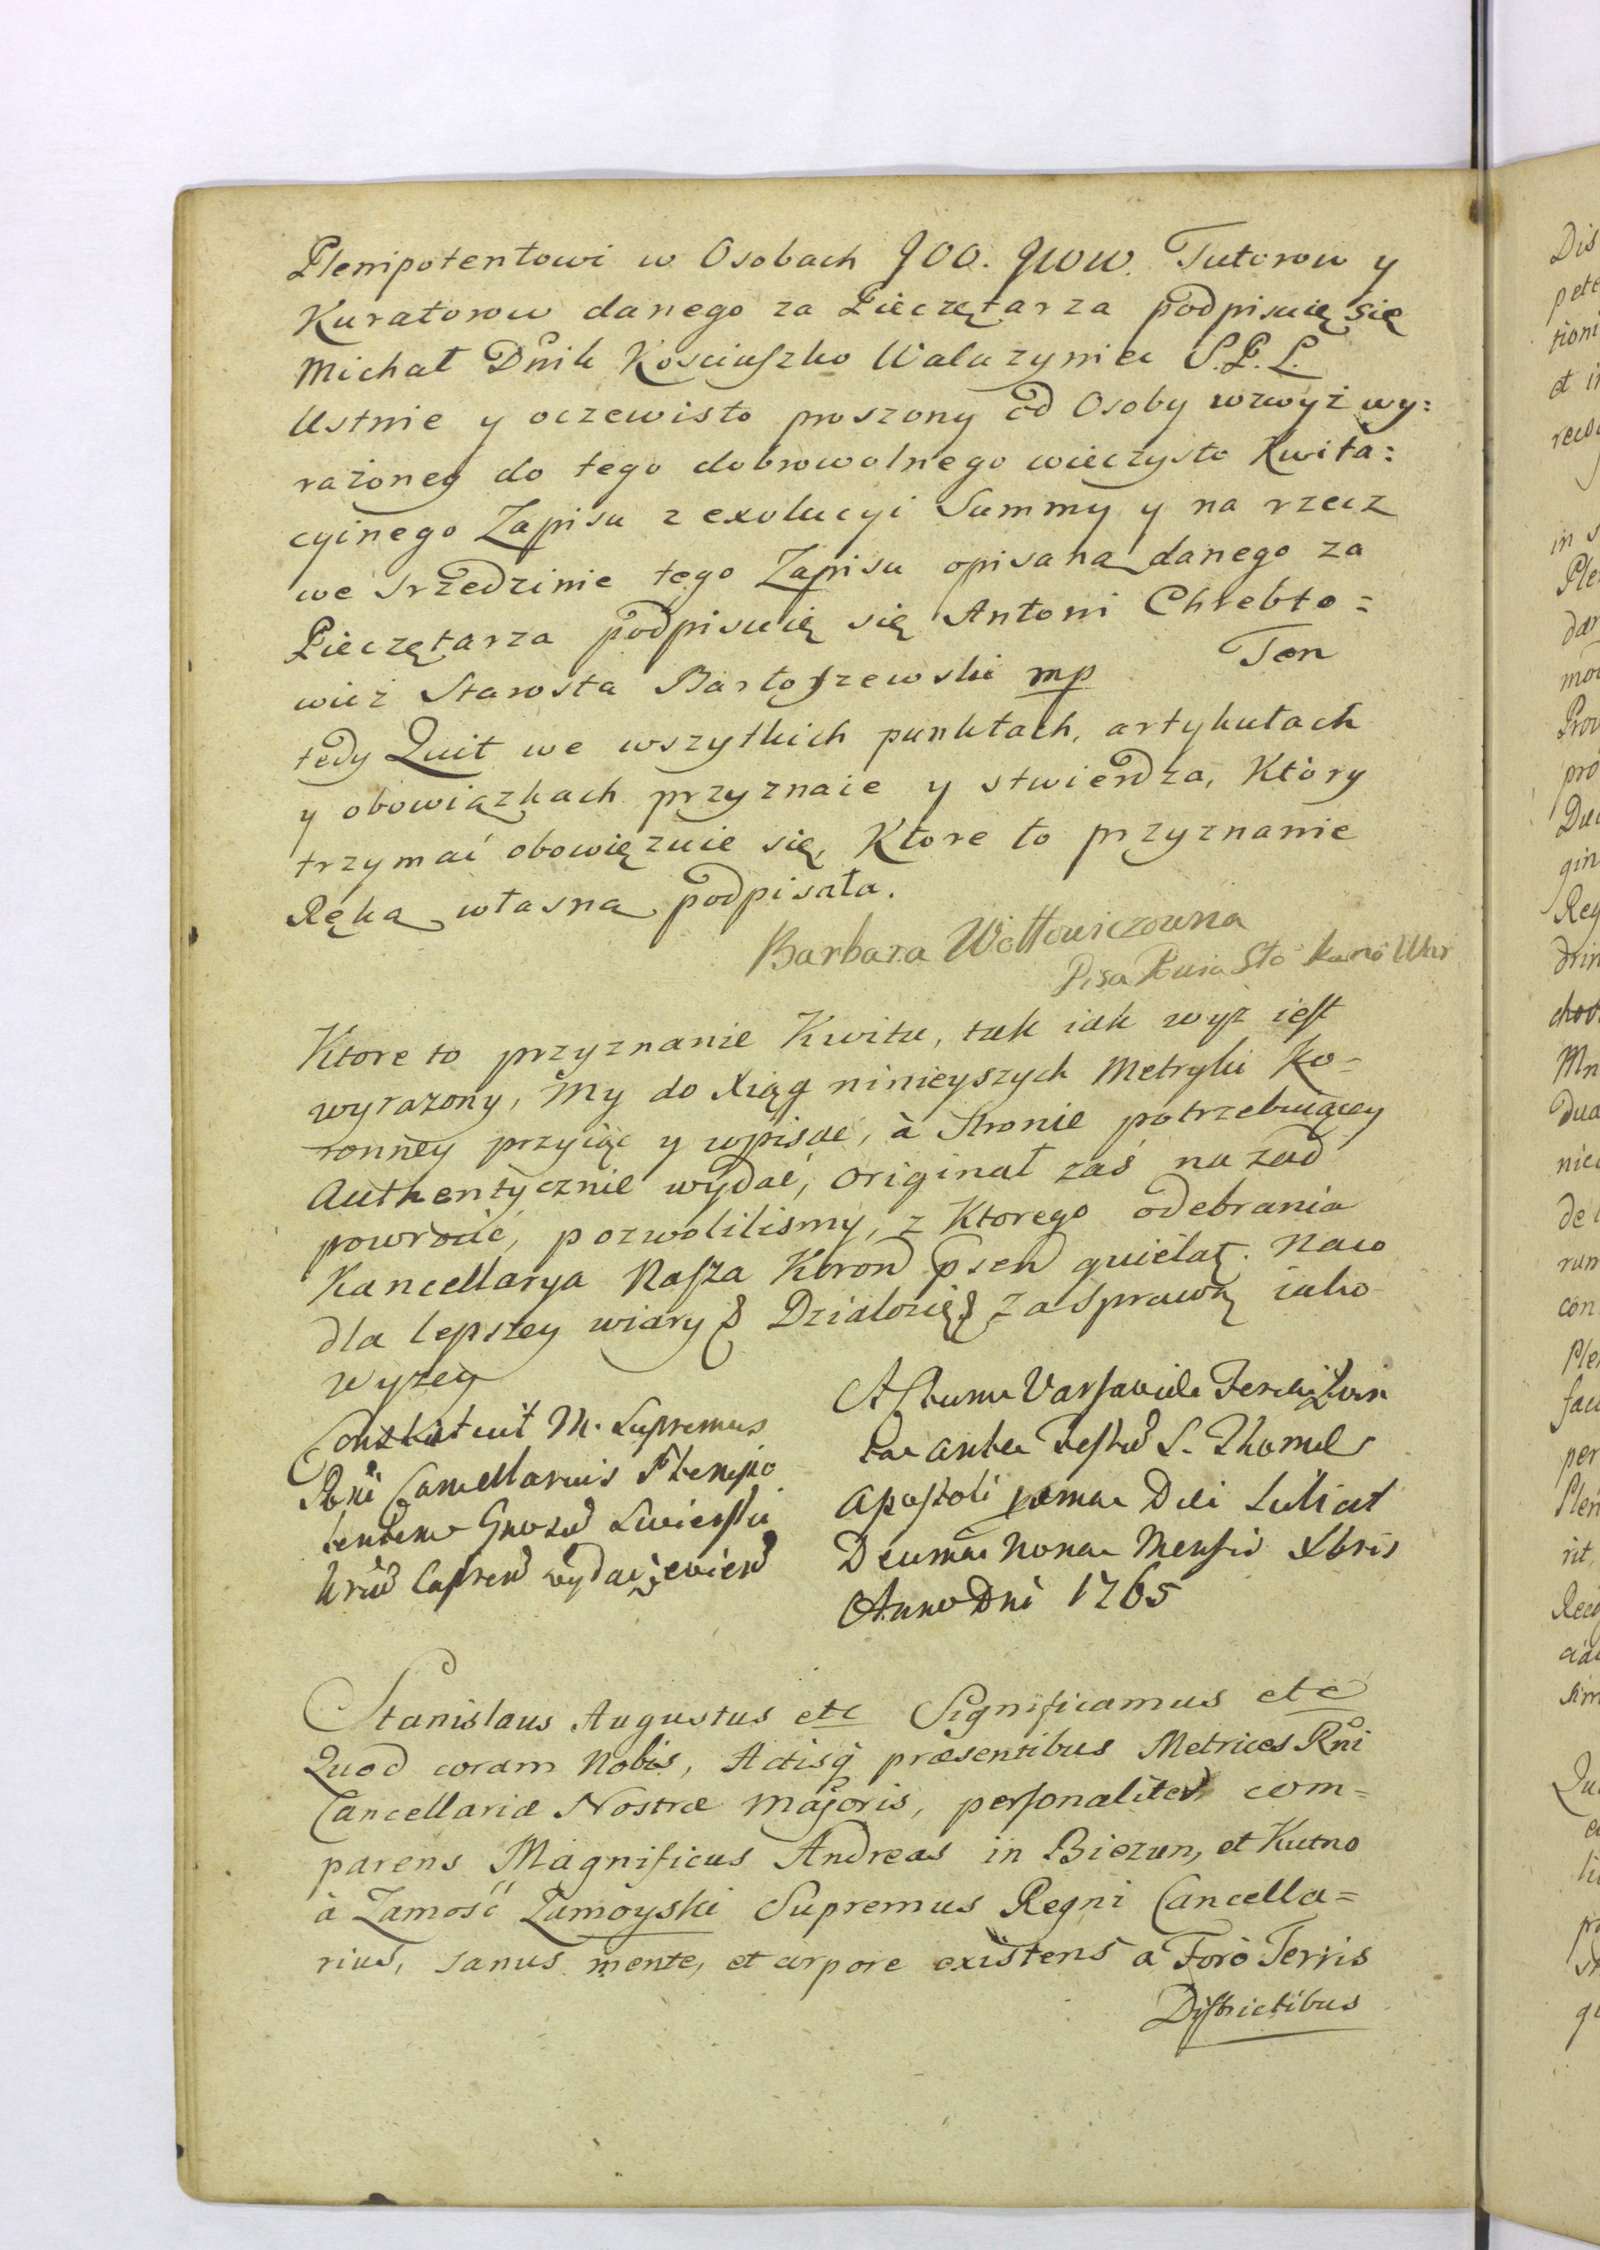 Plenipotentowi w Osobach JOO. JWW. Tutorow y
Kuratorow danego za Pieczętarza podpisuię się
Michał Dnik Kosciuszko Waluzyniec S. P. L.
Ustnie y oczewisto proszony od Osoby wzwyż wy:
rażoney do tego dobrowolnego wieczysto Kwita:
cyinego Zapisu z exolucyi Summy y na rzecz
we srzedzinie tego Zapisu opisaną danego za
Pieczętarza podpisuię się Antoni Chrebto=
wicz Starosta Bartoszewski mp Ten
tedy Quit we wszytkich punktach, artykułach
y obowiązkach przyznaie y stwierdza, Który
trzymać obowięzuie się, Ktore to przyznanie
Ręką własną podpisała.
Barbara Wołłowiczowna
Pisa
Ktore to przyznanie Kwitu, tak iak wyż iest
wyrazony, My do Xiąg ninieyszych Metryki Ko-
ronney przyiąc y wpisać, à Stronie potrzebuiącey
Authentycznie wydać, originał zaś nazad
powrocić, pozwolilismy, z Ktorego odebrania
Kancellarya Nasza Koron psen quietat. Naco
dla lepszey wiary Działosię Zasprawą iako
wyzey
Constituit M. Supremus
Rni Cancellarius Plenipo
tentem Gnosu
Actum Varsaviæ Feria Quin
ta ante Festu S. Thomæ
Apostoli Dei
Decima Nona Mensis Xbris
Anno Dni 1765
Stanislaus Augustus etc Significamus etc
Quod coram Nobis, Actisq præsentibus Metrices Rni
Cancellariæ Nostræ Majoris, personaliter com=
parens Magnificus Andreas in Biezun, et Kutno
à Zamość Zamoyski Supremus Regni Cancella=
rius, sanus mente, et corpore existens a Foro Terris
Districtibus
Dis
pete
tioni
et i
in s
Ple
dar
mo
Pro
pro
Du
gin
Reg
drin
Mn
dua
nie
de
run
con
Ple
fac
per
Plen
rit,
Reco
Qu